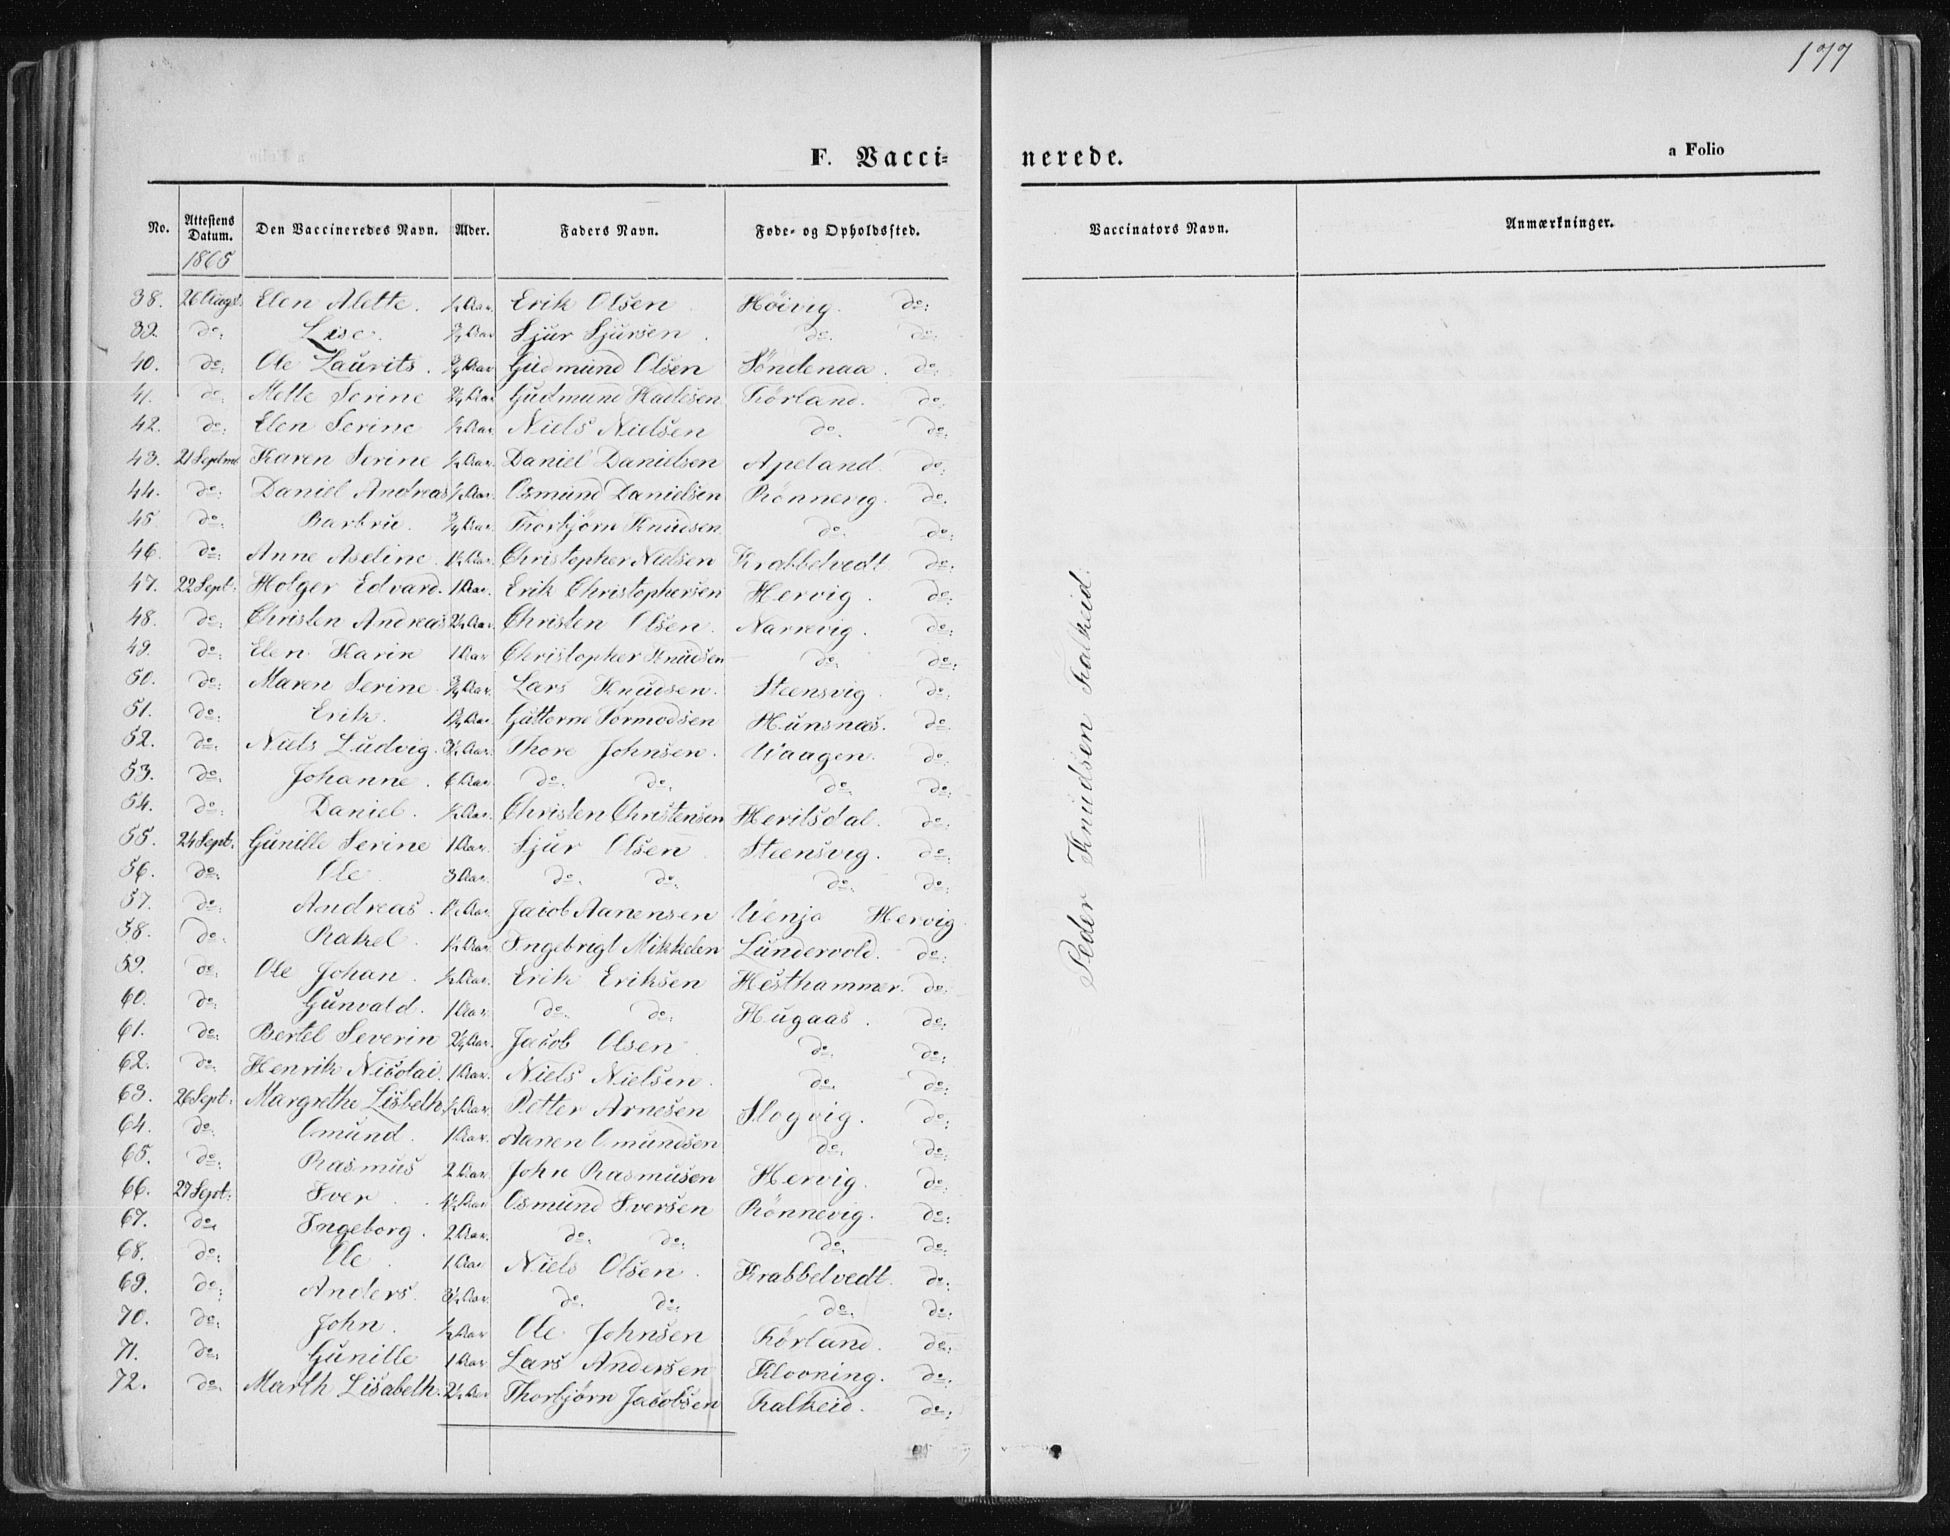 177
F. Vacci-
nerede.
a Folio
No. Attestens Datum. Den Vaccineredes Navn. Alder. Faders Navn. Føde- og Opholdssted. Vaccinators Navn. Anmærkninger.
1865
38. 26 Augst. Elen Alette. ½ Aar. Erik Olsen Høivig. do:
39. do: Lise. ¾ Aar Sjur Sjursen. do. do:
40. do: Ole Laurits. ¾ Aar Gudmund Olsen Søndenaa. do:
41. do: Mette Serine ¾ Aar Gudmund Kadlesen Førland. do:
42. do: Elen Serine ½ Aar Niels Nielsen do. do:
43. 21 Septmr. Karen Serine ½ Aar. Daniel Danielsen Apeland. do:
44. do: Daniel Andreas ½ Aar. Osmund Danielsen Rønnevig. do.
45. do: Barbru. ¾ Aar. Thorbjørn Knudsen do: do:
46. do: Anne Aseline. 1½ Aar. Christopher Nielsen Krabbetvedt do:
47. 22 Sept: Holger Edvard. 1 Aar. Erik Christophersen Hervig. do:
48. do: Christen Andreas 2½ Aar. Christen Olsen. Narrevig. do:
49. do: Elen Karin 1 Aar Christopher Knudsen do: do:
50. do: Maren Serine. ¾ Aar. Lars Knudsen. Steensvig. do:
51. do: Erik. 1¾ Aar. Guttorm Tormodsen Hunsnæs. do:
52. do: Niels Ludvig. 3½ Aar. Thore Johnsen. Vaagen. do:
53. do: Johanne. 6 Aar. do. do. do. do:
54. do: Daniel. ½ Aar. Christen Christensen Heritsdal. do:
55. 24 Sept. Gunille Serine 1 Aar. Sjur Olsen. Steensvig. do:
56. do: Ole. 3 Aar. do. do. do. do:
57. do: Andreas. 1½ Aar. Jacob Aanensen Wenjo Hervig.
58. do: Rakel. 1½ Aar. Ingebrigt Mikkelen Lundervold. do:
59. do: Ole Johan. ½ Aar. Erik Eriksen Hesthammer. do:
60. do: Gunvald. 1 Aar. do. do. Hugaas. do:
61. do: Bertel Severin 2½ Aar. Jacob Olsen do. do:
62. do: Henrik Nicolai. 1 Aar. Niels Nielsen. do. do:
63. 26 Sept: Margrethe Lisbeth. ½ Aar. Petter Arnesen Slogvig. do:
64. do: Omund. 1 Aar. Aanen Omundsen do. do:
65. do: Rasmus 2 Aar. John Rasmusen Hervig. do:
66. 27 Sept: Iver. 4½ Aar Osmund Iversen Rønnevig. do:
67. do. Ingeborg. 2 Aar. do: do: do. do:
68. do: Ole. 1 Aar Niels Olsen. Krabbetvedt. do:
69. do: Anders. 3½ Aar. do. do. do. do:
70. do: John. ½ Aar Ole Johnsen Førland. do:
71. do: Gunille 1 Aar Lars Andersen Klovning. do:
72. do. Marth Lisabeth. 2½ Aar Thorbjørn Jacobsen Falkeid. do:
Peder Knudsen Falkeid.